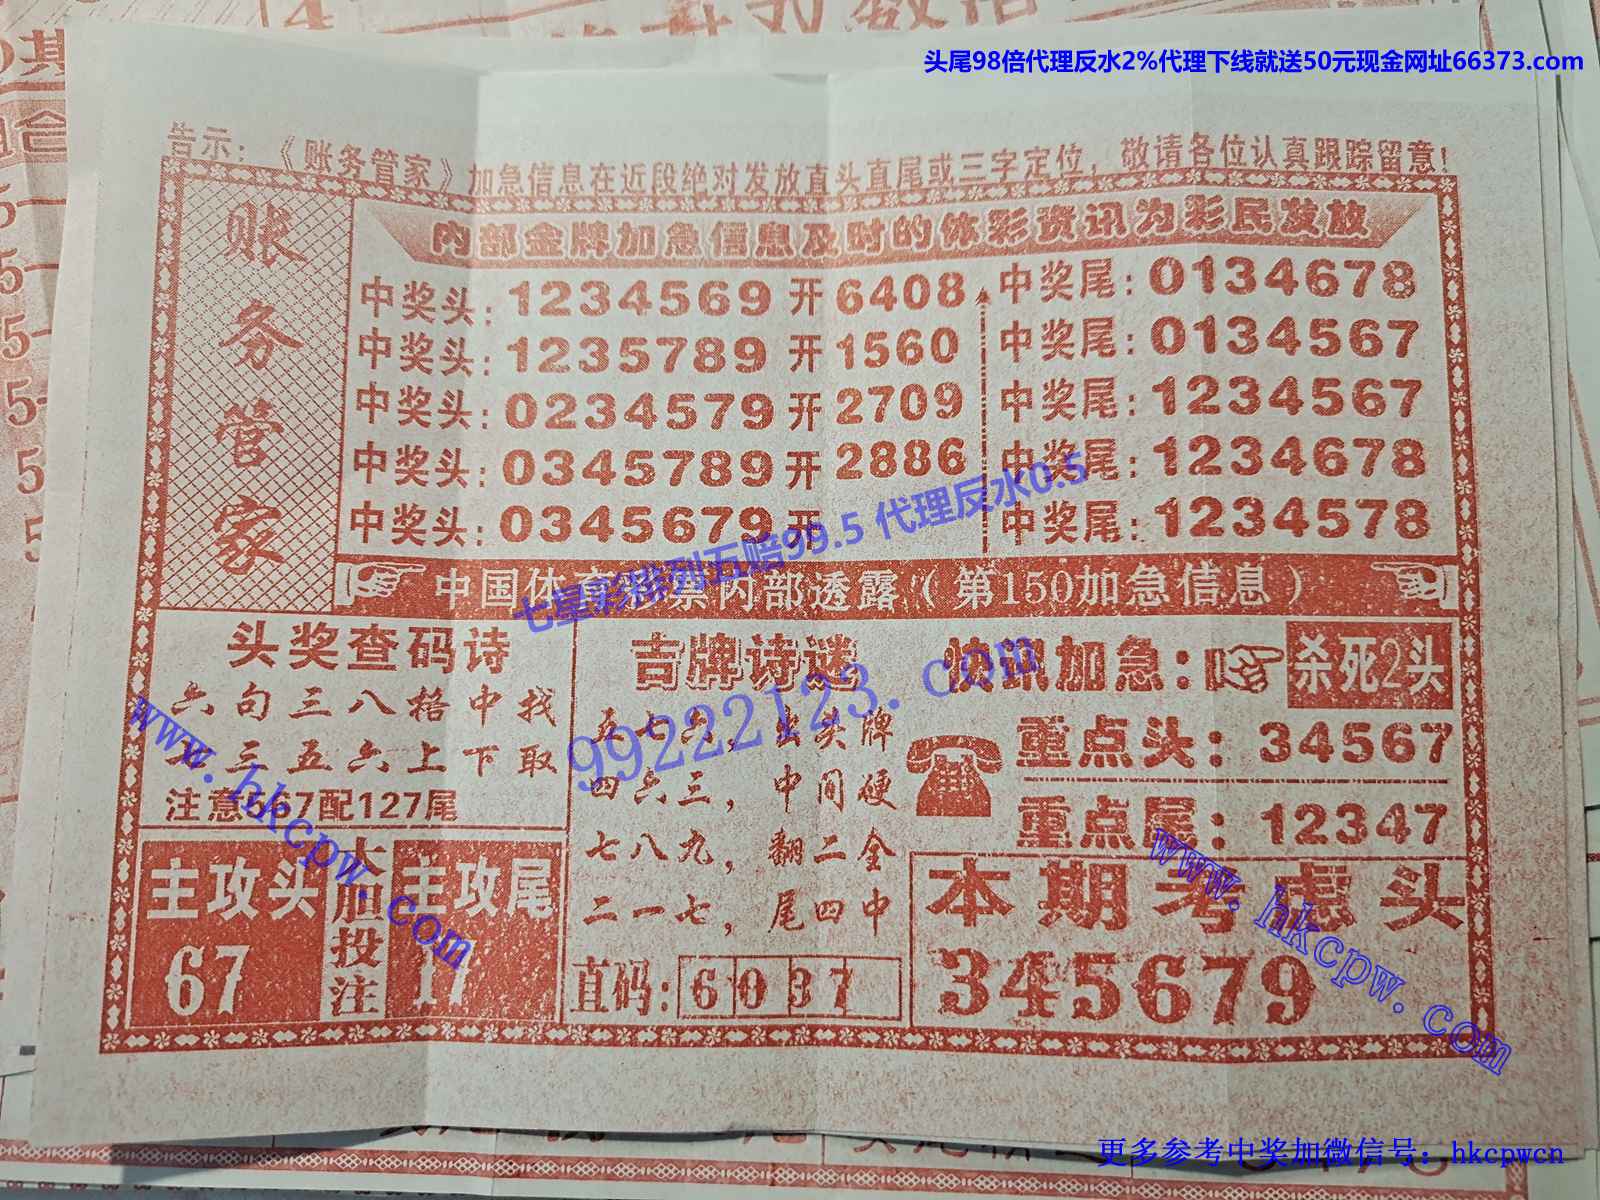 头尾98倍代理反水2%代理下线就送50元现金网址66373.com
告示：《账务管家》加急信息在近段绝对发放直头直尾或三字定位，敬请各位认真跟踪留意！
账务管家
内部金牌加急信息及时的体彩资讯为彩民发放
中奖头：1234569开6408 中奖尾：0134678
中奖头：1235789开1560 中奖尾：0134567
中奖头：0234579开2709 中奖尾：1234567
中奖头：0345789开2886 中奖尾：1234678
中奖头：0345679开 中奖尾：1234578
七星彩排列五赔99.5 代理反水0.5
中国体育彩票内部透露（第150加急信息）
头奖查码诗
六句三八格中找
三五六上下取
注意567配127尾
主攻头
67
大胆投注
主攻尾
17
吉牌诗谜
五七六，出头牌
四六三，中间硬
七八九，翻二全
二一七，尾四中
直码：6037
99222123.com
快讯加急：杀死2头
重点头：34567
重点尾：12347
本期考虑头
345679
www.hkcpw.com
www.hkcpw.com
更多参考中奖加微信号：hkcpwcn